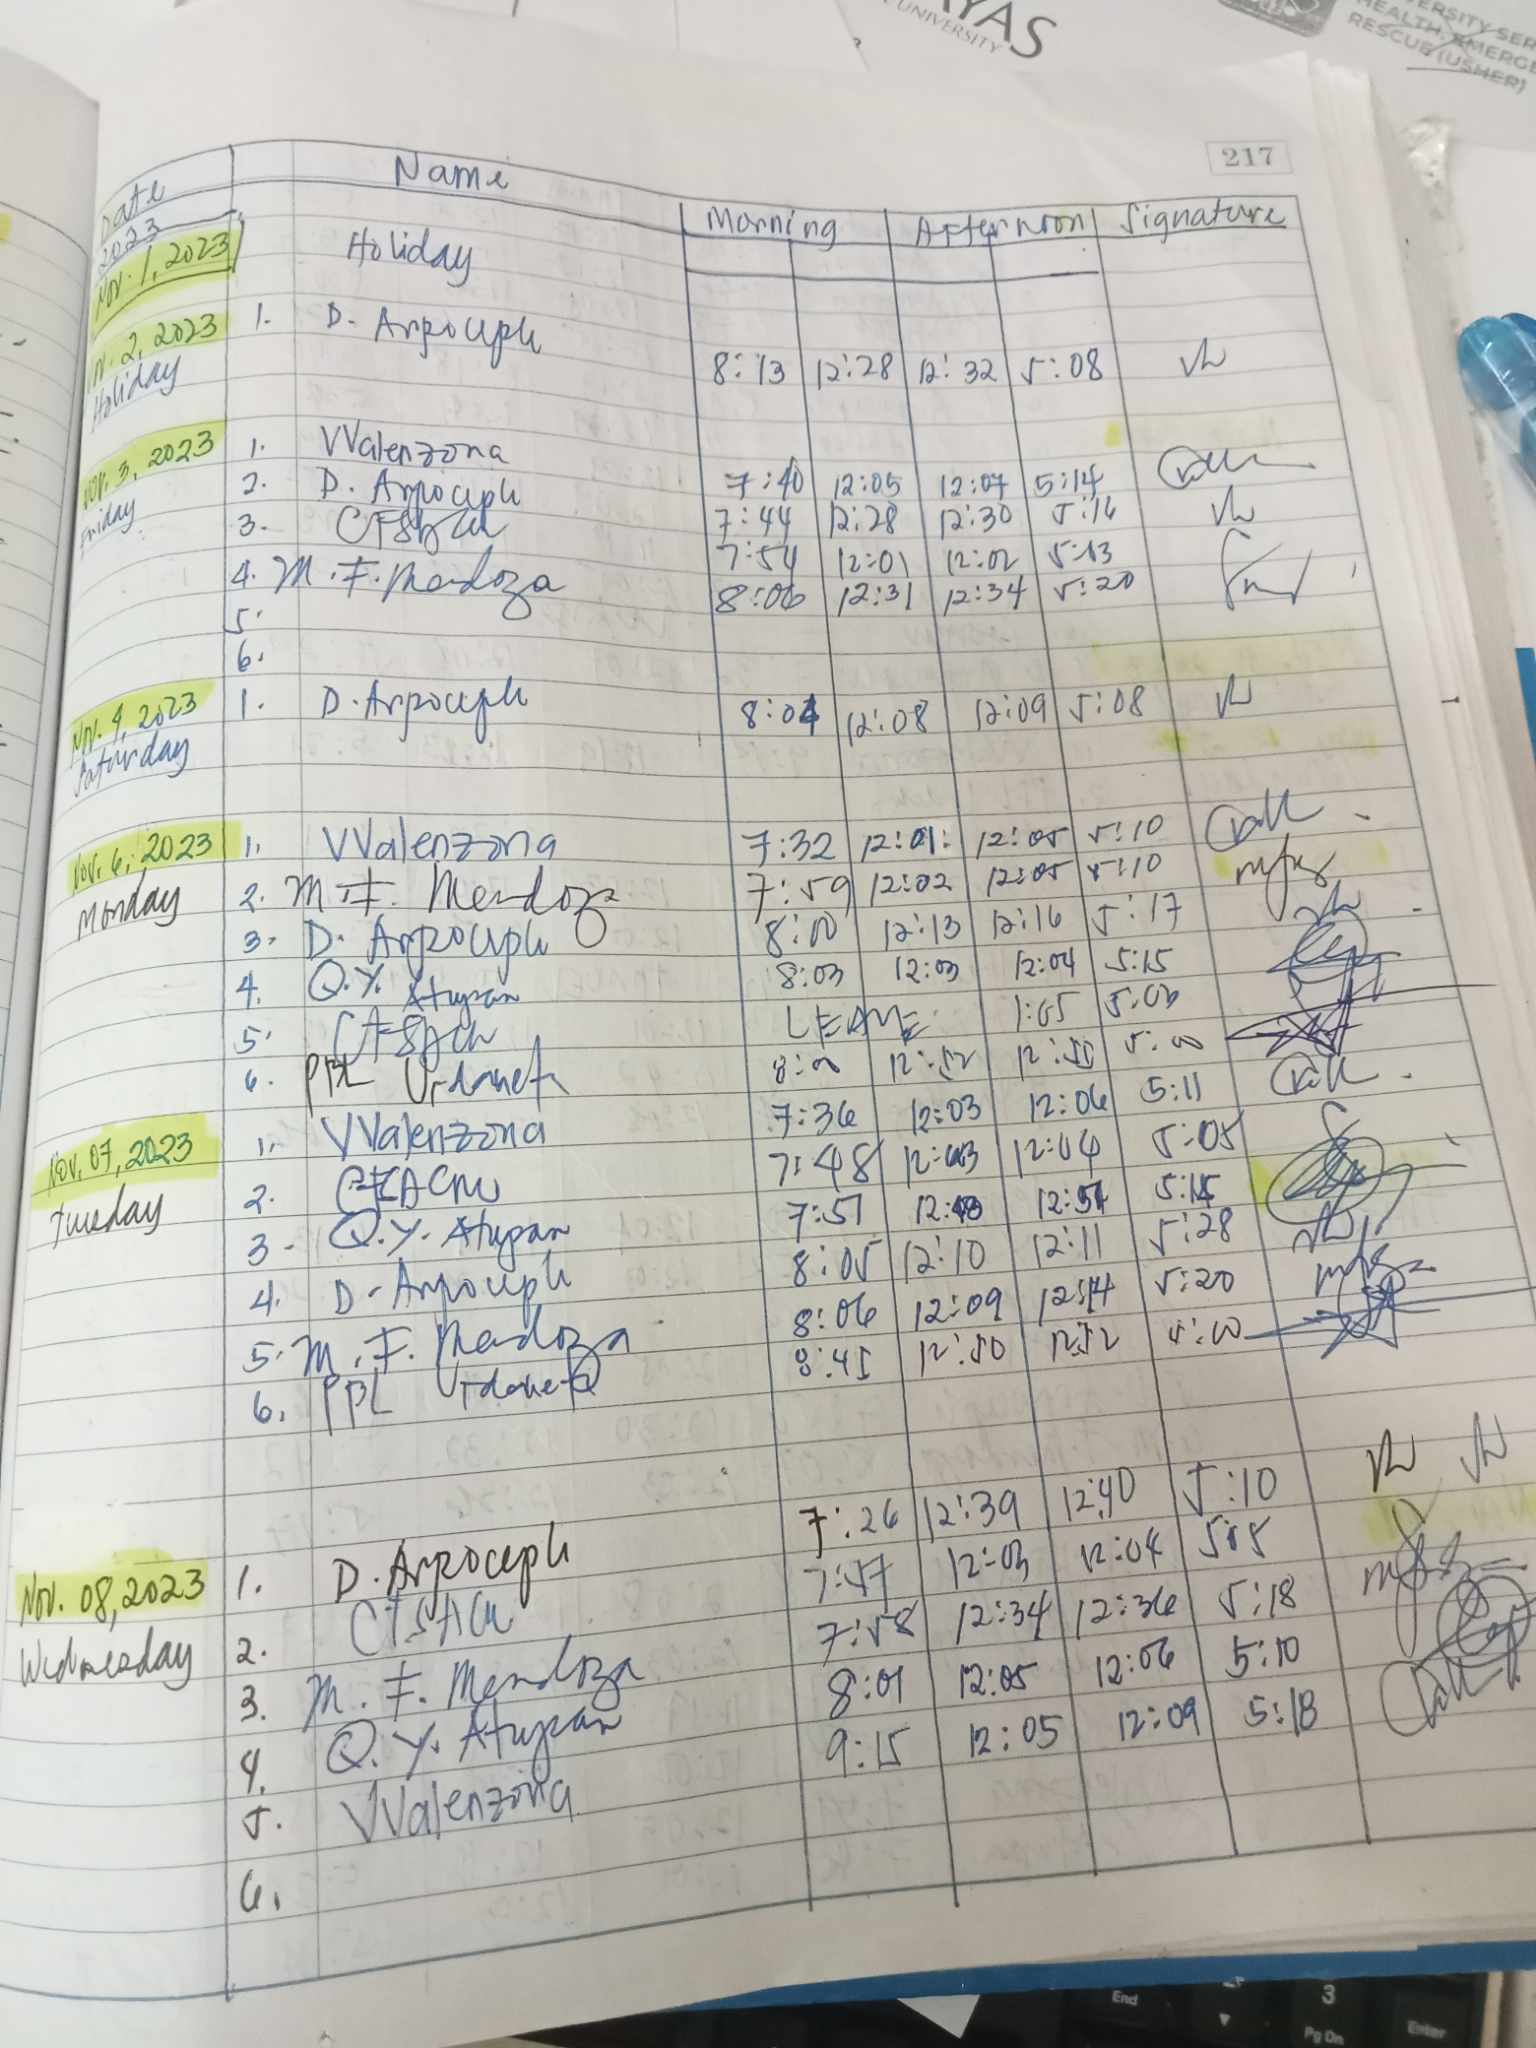 YAS
UNIVERSITY
VERSITY SER
HEALTH, EMERGE
RESCUE (USHER)
217
Date Name Morning Afternoon Signature
2023
Nov. 1, 2023 Holiday
2, 2023 1. D. Arpoceph 8:13 12:28 12:32 5:08
Holiday
Nov. 3, 2023 1. VValenzona 7:40 12:05 12:07 5:14
Friday 2. D. Arpoceph 7:44 12:28 12:30 5:16
3. 7:54 12:01 12:02 5:13
4. M. F. Mendoza 8:06 12:31 12:34 5:20
5.
6.
Nov. 4, 2023 1. D. Arpoceph 8:04 12:08 12:09 5:08
Saturday
Nov. 6, 2023 1. VValenzona 7:32 12:01 12:05 5:10
Monday 2. M. F. Mendoza 7:59 12:02 12:05 5:10
3. D. Arpoceph 8:00 12:13 12:16 5:17
4. Q.Y. Atupan 8:03 12:03 12:04 5:15
5. LEAVE 1:05 5:03
6. PBL Urdaneta 8:00 12:52 12:55 5:00
Nov. 07, 2023 1. VValenzona 7:36 12:03 12:06 5:11
Tuesday 2. 7:48 12:03 12:04 5:05
3. Q.Y. Atupan 7:51 5:15
4. D. Arpoceph 8:05 12:10 12:11 5:28
5. M. F. Mendoza 8:06 12:09 12:14 5:20
6. PBL Urdaneta 8:45 12:50 12:52 5:00
Nov. 08, 2023 1. D. Arpoceph 7:26 12:39 12:40 5:10
Wednesday 2. 7:47 12:03 12:04
3. M. F. Mendoza 7:58 12:34 12:36 5:18
4. Q.Y. Atupan 8:01 12:05 12:06 5:10
5. VValenzona 9:15 12:05 12:09 5:18
6.
End
3
Pg Dn
Enter